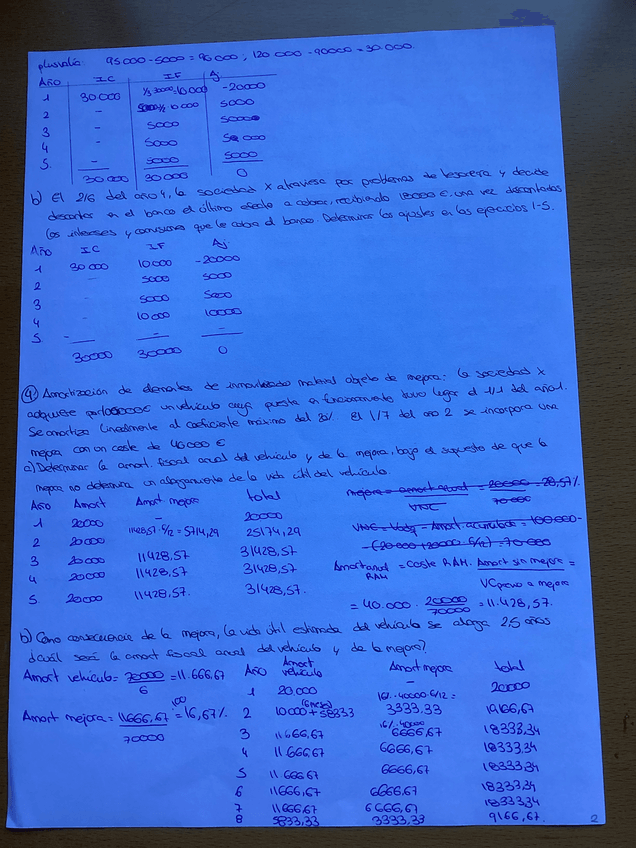 plusvalía: 95000-5000 = 90000, 120 000 - 90000 = 30.000.
Año IC IF Aj.
1 30000 1/3 30000=10000 -20000
2 - 10 000 5000
3 - 5000 5000
4 - 5000 5000
5. - 5000 5000
30 000 30000 0
b) El 2/6 del año 4, la sociedad X atraviesa por problemas de tesorería y decide
descontar en el banco el último efecto a cobrar, recibiendo 18000 €, una vez descontados
los intereses y comisiones que le cobra el banco. Determinar los ajustes en los ejercicios 1-5.
Año IC IF Aj.
1 30 000 10.000 -20000
2 - 5000 5000
3 - 5000 5000
4 - 10 000 10000
5 - - -
30000 30000 0
4. Amortización de elementos de inmovilizado material objeto de mejora: la sociedad X
adquiere por 100000€ un vehículo cuya puesta en funcionamiento tuvo lugar el 1/1 del año 1.
Se amortiza linealmente al coeficiente máximo del 20%. El 1/7 del año 2 se incorpora una
mejora con un coste de 40000 €
a) Determinar la amort. fiscal anual del vehículo y de la mejora, bajo el supuesto de que la
mejora no determina un alargamiento de la vida útil del vehículo.
Año Amort Amort mejora total
1 20000 - 20000
2 20000 11428,57·6/12 = 5714,29 25174,29
3 20000 11428,57 31428,57
4 20000 11428,57 31428,57
5. 20000 11428,57. 31428,57.
mejora = amort anual / VNC = 20000 / 70000 = 28,57%
VNC = Vadq - Amort. acumulada = 100.000 -
- (20 000 + 20000 · 6/12) = 70 000
Amort anual RAM = coste RAM. Amort sin mejora / VC previo a mejora =
= 40.000 · 20000 / 70000 = 11.428,57.
b) Como consecuencia de la mejora, la vida útil estimada del vehículo se alarga 2,5 años
¿cuál será la amort fiscal anual del vehículo y de la mejora?
Amort vehículo = 70000 / 6 = 11.666,67
Amort mejora = 11666,67 / 70000 · 100 = 16,67%
Año Amort vehículo Amort mejora total
1 20000 - 20000
2 10000 + 5833,3 (6 meses) 16% · 40000·6/12 = 3333,33 19166,67
3 11666,67 16% · 40000 6666,67 18333,34
4 11 666,67 6666,67 18333,34
5 11 666,67 6666,67 18333,34
6 11666,67 6666,67 18333,34
7 11666,67 6666,67 18333,34
8 5833,33 3333,33 9166,67.
2